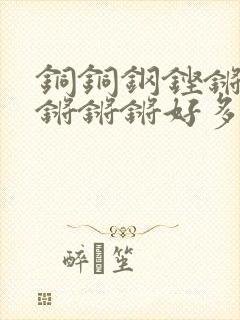 銅銅鋼鏗鏘
鏘鏘鏘好多
醉笙